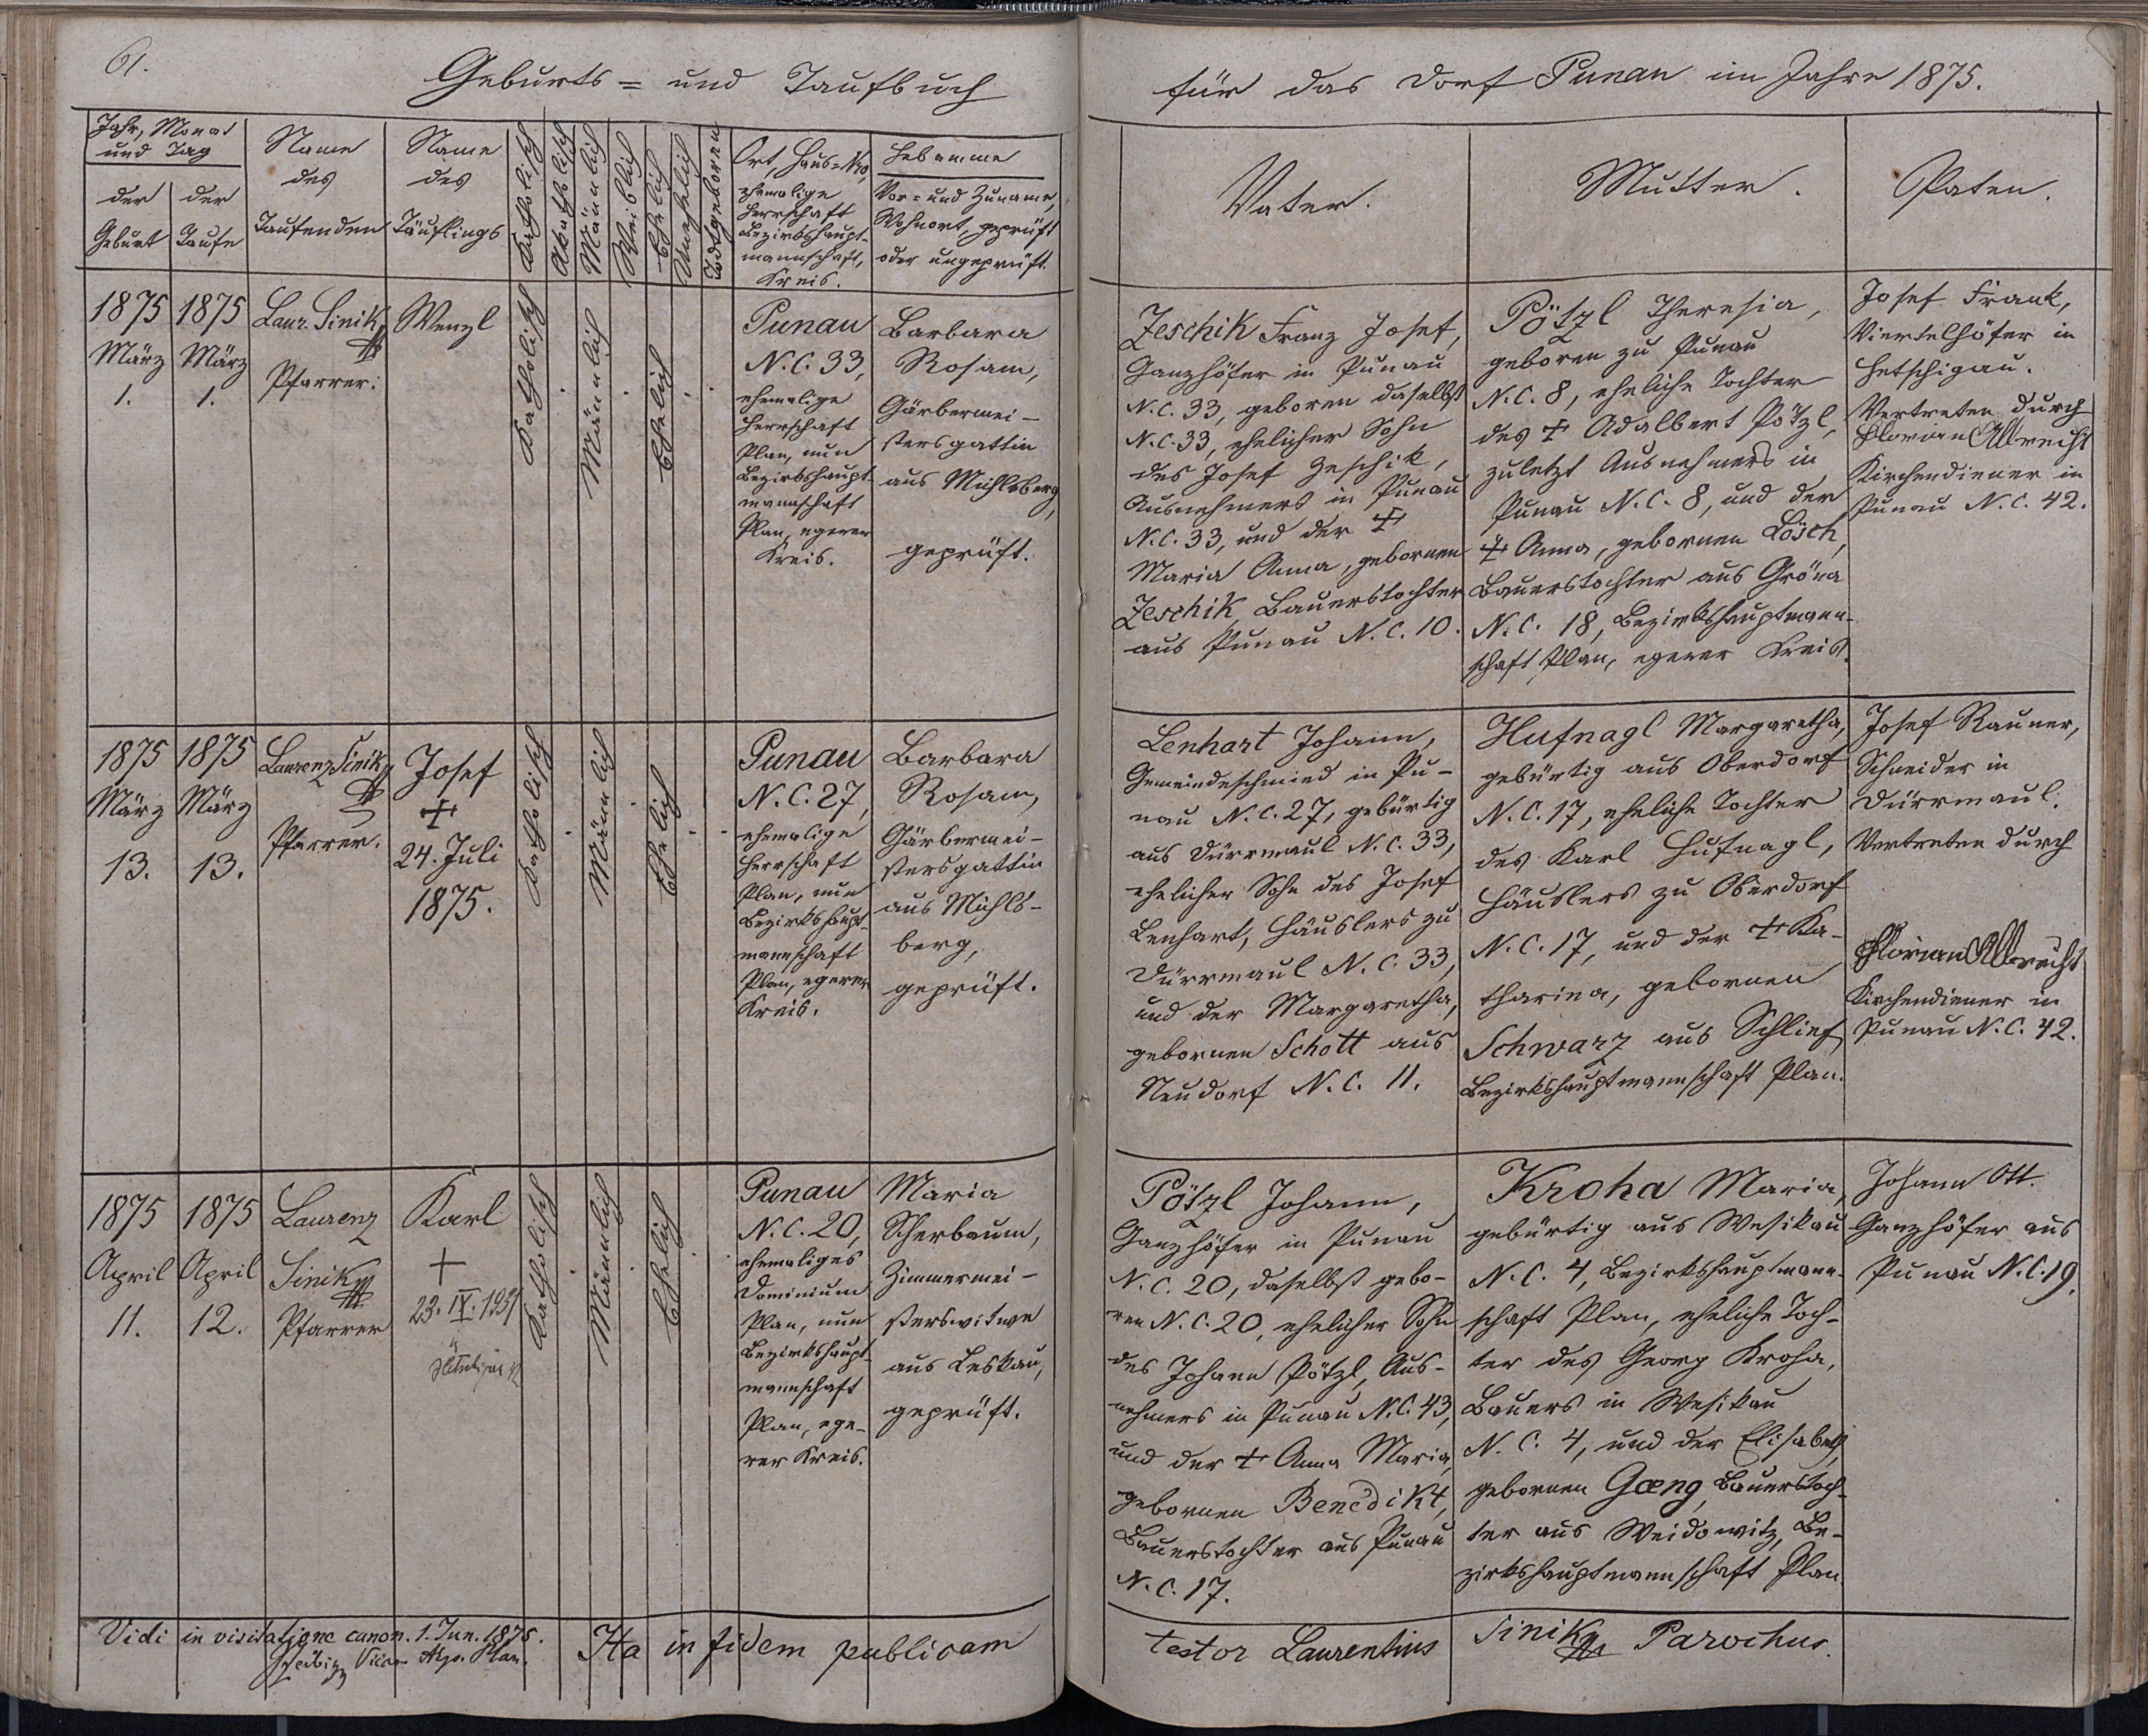 61.
Geburts = und Taufbuch
für das Dorf Punau im Jahre 1875.
Jahr, Monat
und Tag
der
Geburt
der
Taufe
Name
des
Taufenden
Name
des
Täuflings
Katholisch
Akatholisch
Männlich
Weiblich
Ehelich
Unehelich
Todtgeboren
Ort, Haus=Nro,
ehemalige
Herrschaft
Bezirkshaupt-
mannschaft,
Kreis.
Hebamme
Vor- und Zuname,
Wohnort, geprüft
oder ungeprüft.
Vater.
Mutter.
Paten.
1875
März
1.
1875
März
1.
Laur. Sinik
Pfarrer.
Wenzl
Katholisch
Männlich
Ehelich
Punau
N.C. 33,
ehemalige
Herrschaft
Plan, nun
Bezirkshaupt-
mannschaft
Plan, egerer
Kreis.
Barbara
Rosam,
Gärbermei-
stersgattin
aus Michlsberg,
geprüft.
Zeschik Franz Josef,
Ganzhöfer in Punau
N.C. 33, geboren daselbst
N.C. 33, ehelicher Sohn
des Josef Zeschik,
Ausnehmers in Punau
N.C. 33, und der ‡
Maria Anna, gebornen
Zeschik Bauerstochter
aus Punau N.C. 10.
Pötzl Theresia,
geboren zu Punau
N.C. 8, eheliche Tochter
des ‡ Adalbert Pötzl,
zuletzt Ausnehmers in
Punau N.C. 8, und der
‡ Anna, gebornen Lösch,
Bauerstochter aus Gröna
N.C. 18, Bezirkshauptmann-
schaft Plan, egerer Kreis.
Josef Frank,
Viertelhöfer in
Hetschigau.
Vertreten durch
Florian Albrecht
Kirchendiener in
Punau N.C. 42.
1875
März
13.
1875
März
13.
Laurenz Sinik
Pfarrer.
Josef
‡
24. Juli
1875.
Katholisch
Männlich
Ehelich
Punau
N.C. 27,
ehemalige
Herrschaft
Plan, nun
Bezirkshaupt-
mannschaft
Plan, egerer
Kreis.
Barbara
Rosam,
Gärbermei-
stersgattin
aus Michls-
berg,
geprüft.
Lenhart Johann,
Gemeindeschmied in Pu-
nau N.C. 27, gebürtig
aus Dürrmaul N.C. 33,
ehelicher Sohn des Josef
Lenhart, Häuslers zu
Dürrmaul N.C. 33,
und der Margaretha,
gebornen Schott aus
Neudorf N.C. 11.
Hufnagl Margaretha,
gebürtig aus Oberdorf
N.C. 17, eheliche Tochter
des Karl Hufnagl,
Häuslers zu Oberdorf
N.C. 17, und der ‡ Ka-
tharina, gebornen
Schwarz aus Schlief,
Bezirkshauptmannschaft Plan.
Josef Rauner,
Schneider in
Dürrmaul.
Vertreten durch
Florian Albrecht
Kirchendiener in
Punau N.C. 42.
1875
April
11.
1875
April
12.
Laurenz
Sinik
Pfarrer
Karl
+
23. IX. 1951
Katholisch
Männlich
Ehelich
Punau
N.C. 20,
ehemaliges
Dominium
Plan, nun
Bezirkshaupt-
mannschaft
Plan, ege-
rer Kreis.
Maria
Scherbaum,
Zimmermei-
sterswitwe
aus Leskau,
geprüft.
Pötzl Johann,
Ganzhöfer in Punau
N.C. 20, daselbst gebo-
ren N.C. 20, ehelicher Sohn
des Johann Pötzl, Aus-
nehmers in Punau N.C. 43,
und der ‡ Anna Maria,
gebornen Benedikt,
Bauerstochter aus Punau
N.C. 17.
Kroha Maria,
gebürtig aus Wesikau
N.C. 4, Bezirkshauptmann-
schaft Plan, eheliche Toch-
ter des Georg Kroha,
Bauers in Wesikau
N.C. 4, und der Elisabeth,
gebornen Gæng, Bauerstoch-
ter aus Weidowitz, Be-
zirkshauptmannschaft Plan.
Johann Ott.
Ganzhöfer aus
Punau N.C. 19.
Vidi in visitatione canon. 1. Jun. 1875.
Ita in fidem publicam
testor Laurentius Sinik Parochus.